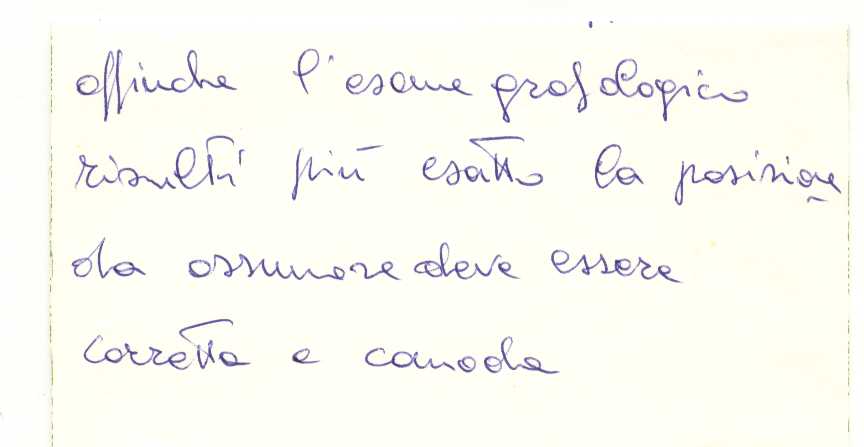 affinche l'esame grafologico
risulti più esatto la posizione
da assumere deve essere
corretta e comoda